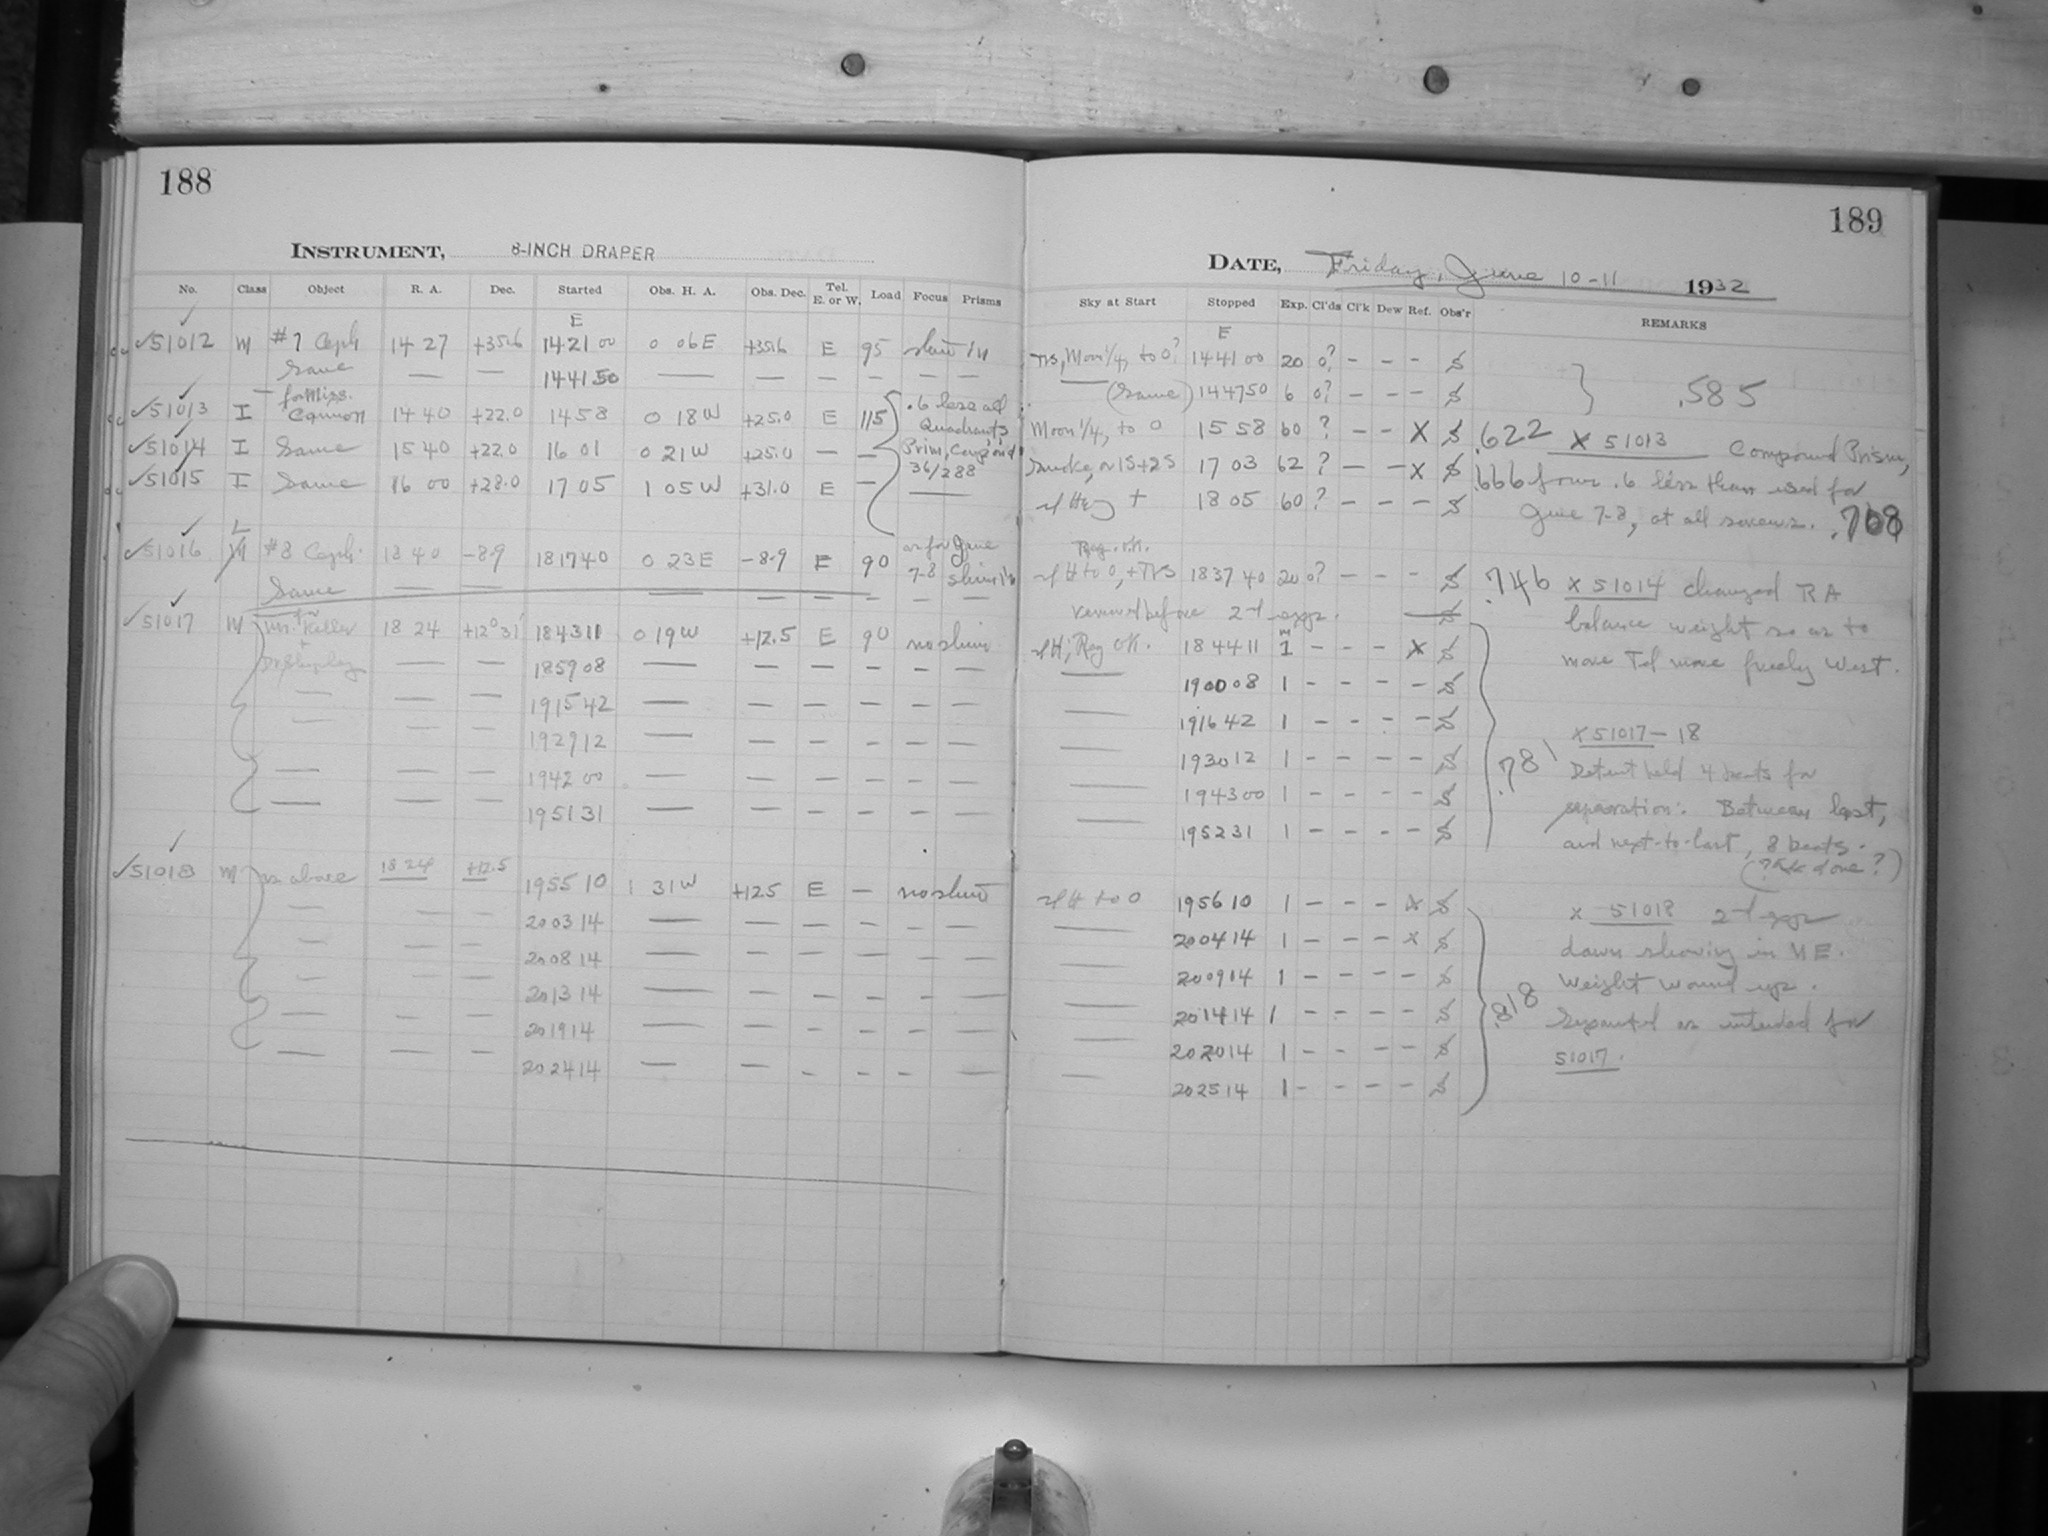 188
INSTRUMENT, 8-INCH DRAPER
No. Class Object R. A. Dec. Started Obs. H. A. Obs. Dec. Tel. E. or W. Load Focus Prisms
E
✓51012 M #7 Ceph 14 27 +35.6 14 21 00 0 06 E +35.6 E 95
Same — — 14 41 50 — — — — — —
for Miss.
✓51013 I Cannon 14 40 +22.0 14 58 0 18 W +25.0 E 115 .6 less all Quadrants
✓51014 I Same 15 40 +22.0 16 01 0 21 W +25.0 — — Prism, Comp'ound
36/288
✓51015 I Same 16 00 +28.0 17 05 1 05 W +31.0 E — —
L
✓51016 M #8 Ceph. 18 40 -8.9 18 17 40 0 23 E -8.9 E 90 as for June
7-8
Same — — — — — — — —
✓51017 M Mr. Keller 18 24 +12°31' 18 43 11 0 19 W +12.5 E 90 no shim
— — 18 59 08 — — — — — —
— — — 19 15 42 — — — — — —
— — — 19 29 12 — — — — — —
— — — 19 42 00 — — — — — —
— — — 19 51 31 — — — — — —
✓51018 M as above 18 24 +12.5 19 55 10 1 31 W +12.5 E — no shim
— — — 20 03 14 — — — — — —
— — — 20 08 14 — — — — — —
— — — 20 13 14 — — — — — —
— — — 20 19 14 — — — — — —
— — — 20 24 14 — — — — — —
189
DATE, Friday, June 10-11 1932
Sky at Start Stopped Exp. Cl'ds Cl'k Dew Ref. Obs'r REMARKS
E
Moon 1/4, to 0? 14 41 00 20 0? — — — S
— (Same) 14 47 50 6 0? — — — S .585
Moon 1/4, to 0 15 58 60 ? — — X S .622 X 51013 Compound Prism,
Smoke, 17 03 62 ? — — X S .666 four .6 less than used for
18 05 60 ? — — — S June 7-8, at all screws. .708
18 37 40 20 0? — — — S .746 X 51014 changed RA
before 2d expo. — S balance weight so as to
Reg OK. 18 44 11 1m — — — X S move Tel more freely West.
— 19 00 08 1 — — — — S
— 19 16 42 1 — — — — S X 51017-18
— 19 30 12 1 — — — — S .781 Detent held 4 beats for
— 19 43 00 1 — — — — S separation. Between last,
— 19 52 31 1 — — — — S and next-to-last, 8 beats.
done?)
to 0 19 56 10 1 — — — X S X 51018 2d expo
— 20 04 14 1 — — — X S dawn showing in NE.
— 20 09 14 1 — — — — S Weight wound up.
— 20 14 14 1 — — — — S .818 Separated as intended for
— 20 20 14 1 — — — — S 51017.
— 20 25 14 1 — — — — S